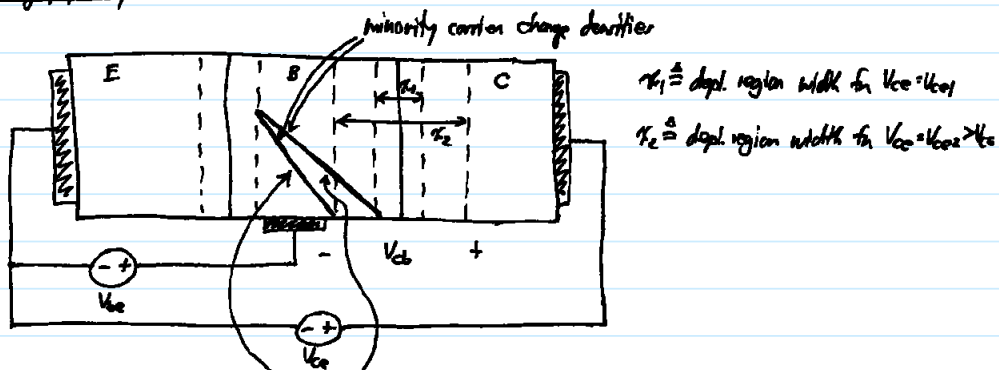 minority carrier charge densities
E B C
x₁
x₂
x₁ ≜ depl. region width for Vce = Vce1
x₂ ≜ depl. region width for Vce = Vce2 > Vce
- Vcb +
- +
Vbe
- +
Vce